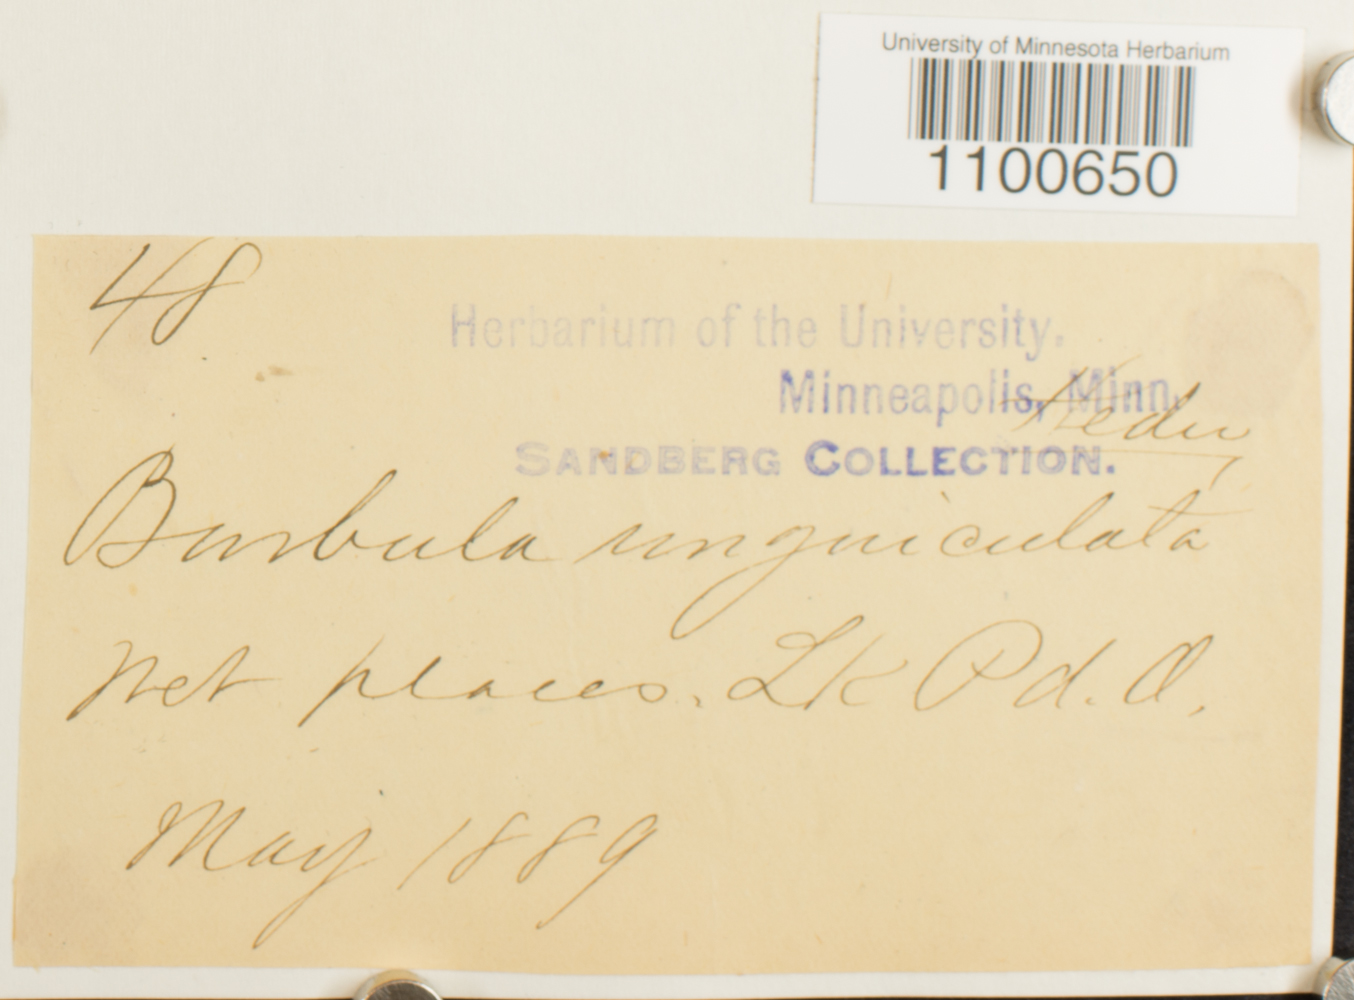 University of Minnesota Herbarium
1100650
48
Herbarium of the University.
Minneapolis, Minn.
Hedw
SANDBERG COLLECTION.
Barbula unguiculata
Wet places. Lk Pd. O.
May 1889